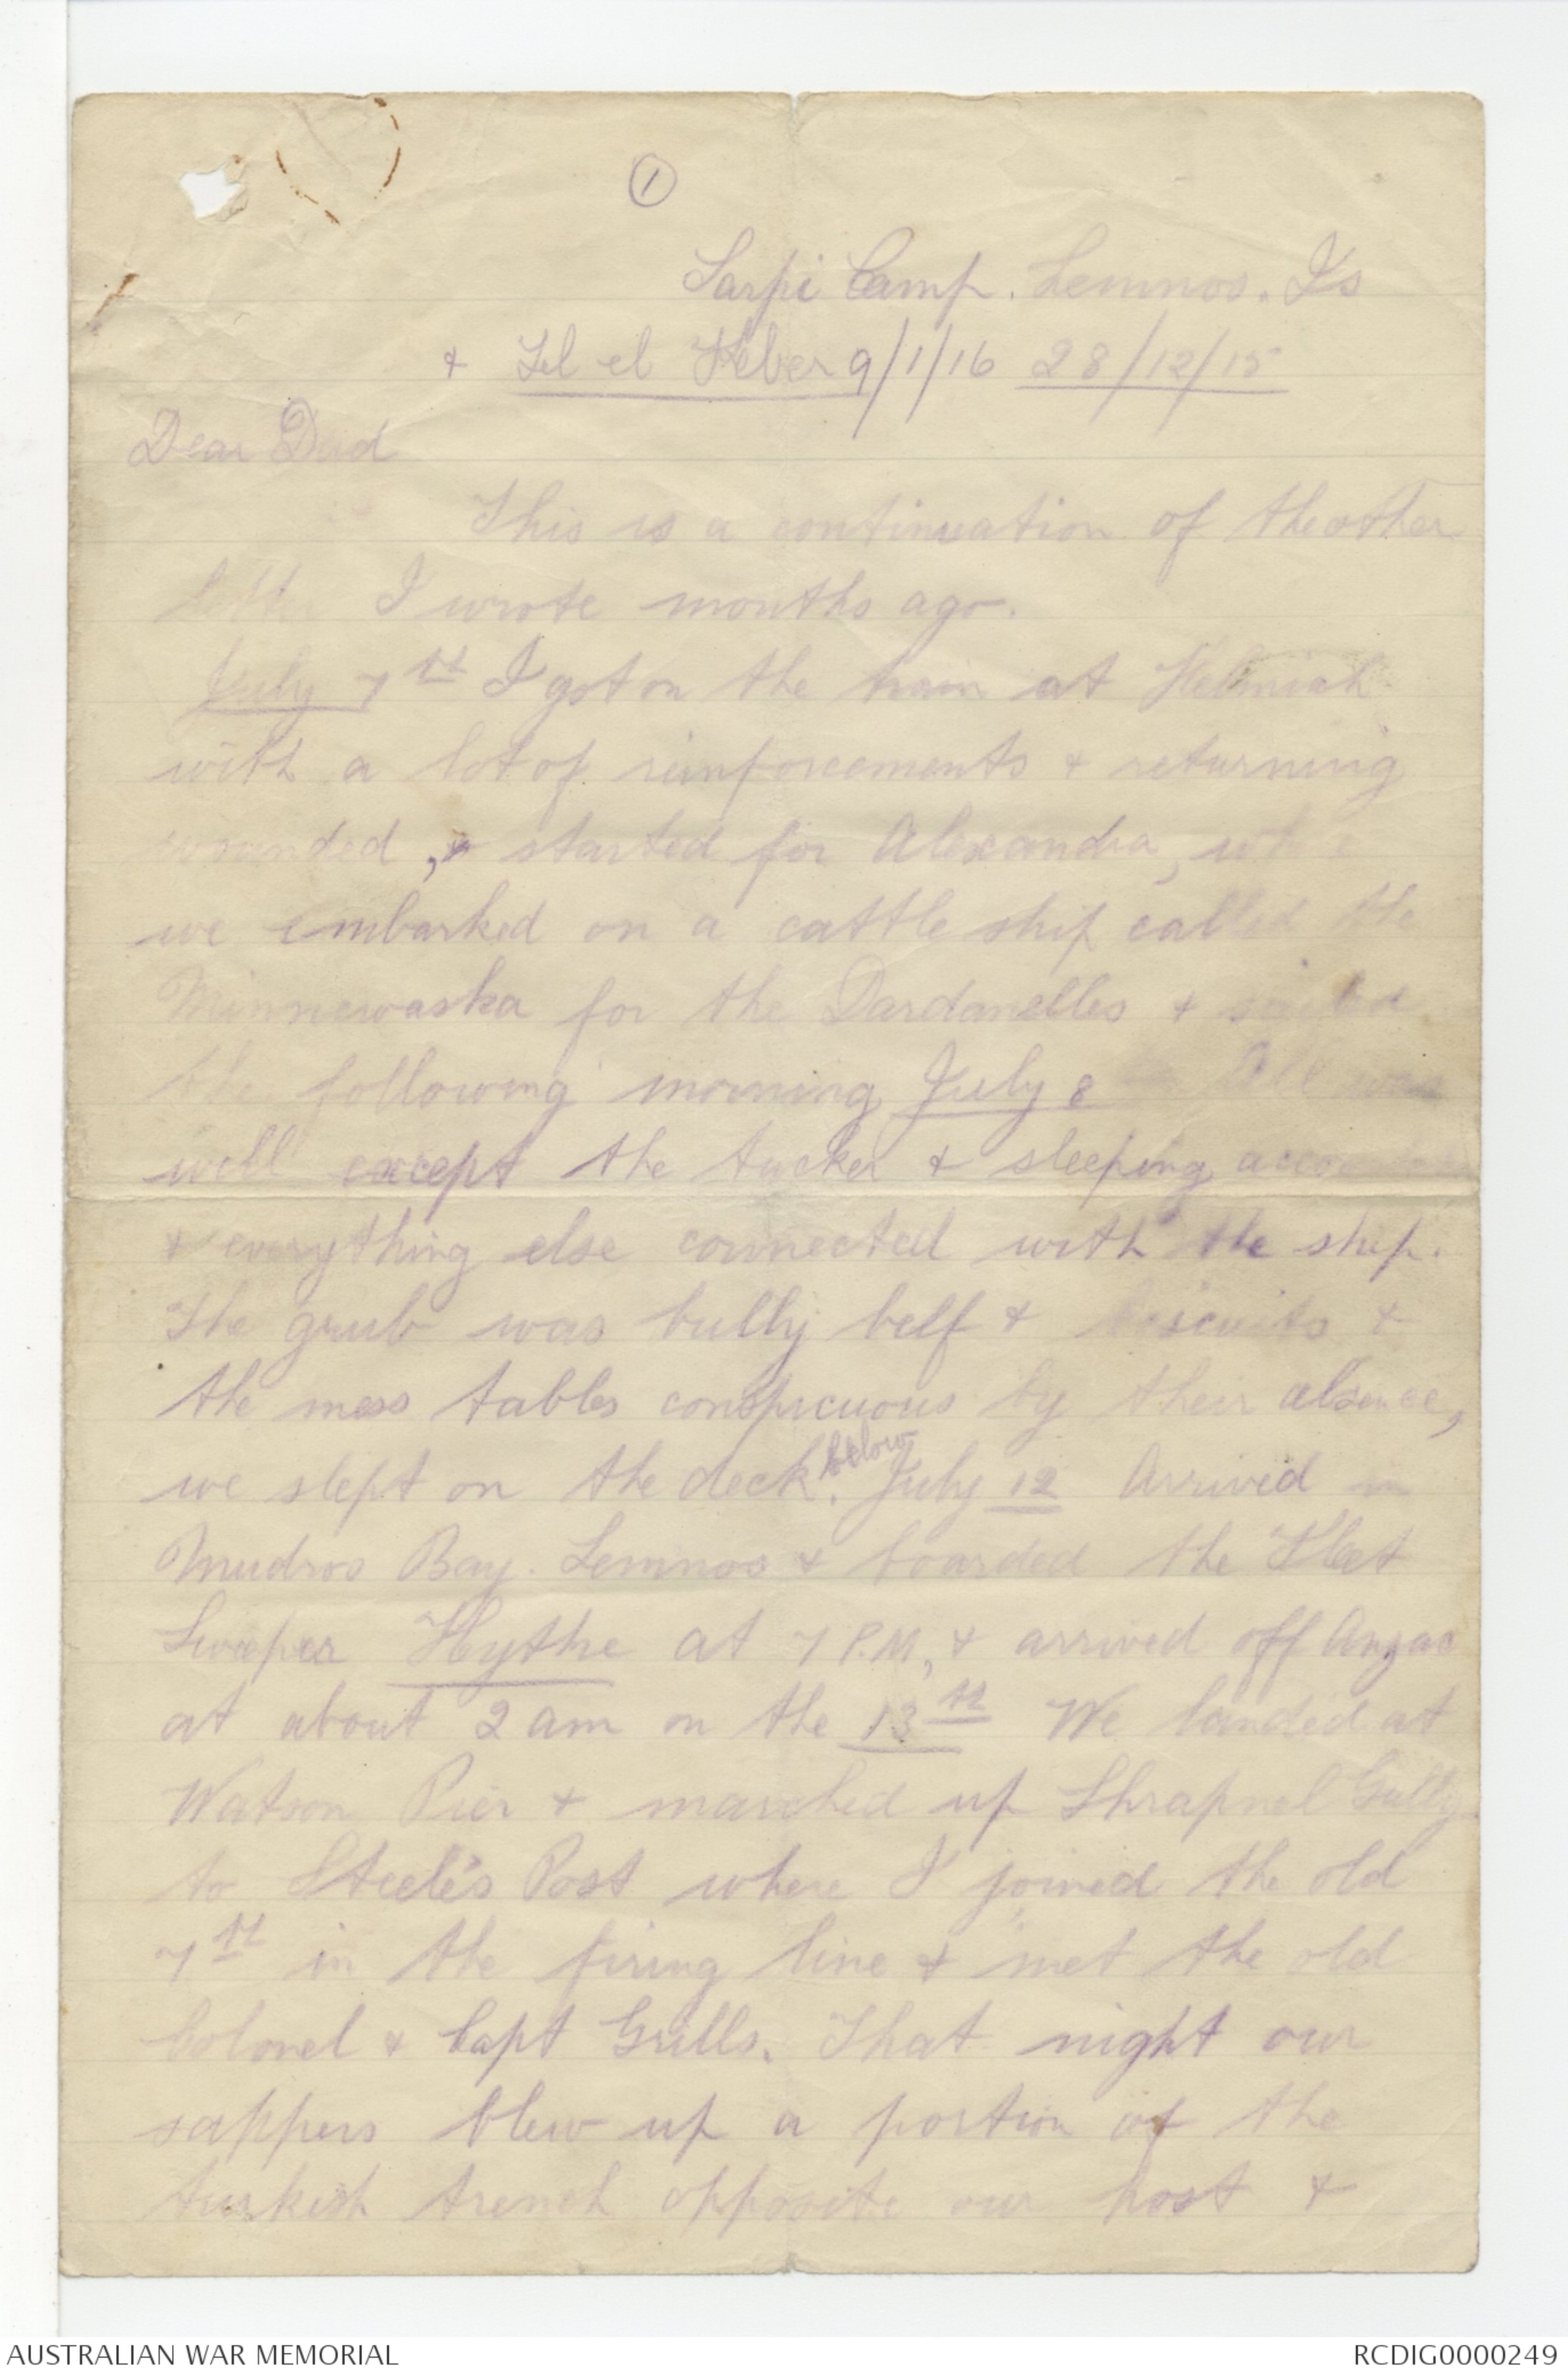 1
Sarpi Camp. Lemnos. Is
+ Tel el Keber 9/1/16 28/12/15
Dear Dad
This is a continuation of the other
letter I wrote months ago.
July 7th I got on the train at Helmieh
with a lot of reinforcements + returning
wounded, + started for Alexandra, where
we embarked on a cattle ship called the
Minnewaska for the Dardanelles + sailed
the following morning July 8 All was
well except the tucker + sleeping
+ everything else connected with the ship.
The grub was bully belf + biscuits +
the mess tables conspicuous by their absence,
we slept on the deck below. July 12 Arrived in
Mudros Bay. Lemnos + boarded the Fleet
Sweeper Hythe at 7 P.M, + arrived off Anzac
at about 2 am on the 13th We landed at
Watson Pier + marched up Shrapnel Gully
to Steele's Post where I joined the old
7th in the firing line + met the old
Colonel + Capt Grills. That night our
sappers blew up a portion of the
turkish trench opposite our post +
AUSTRALIAN WAR MEMORIAL
RCDIG0000249